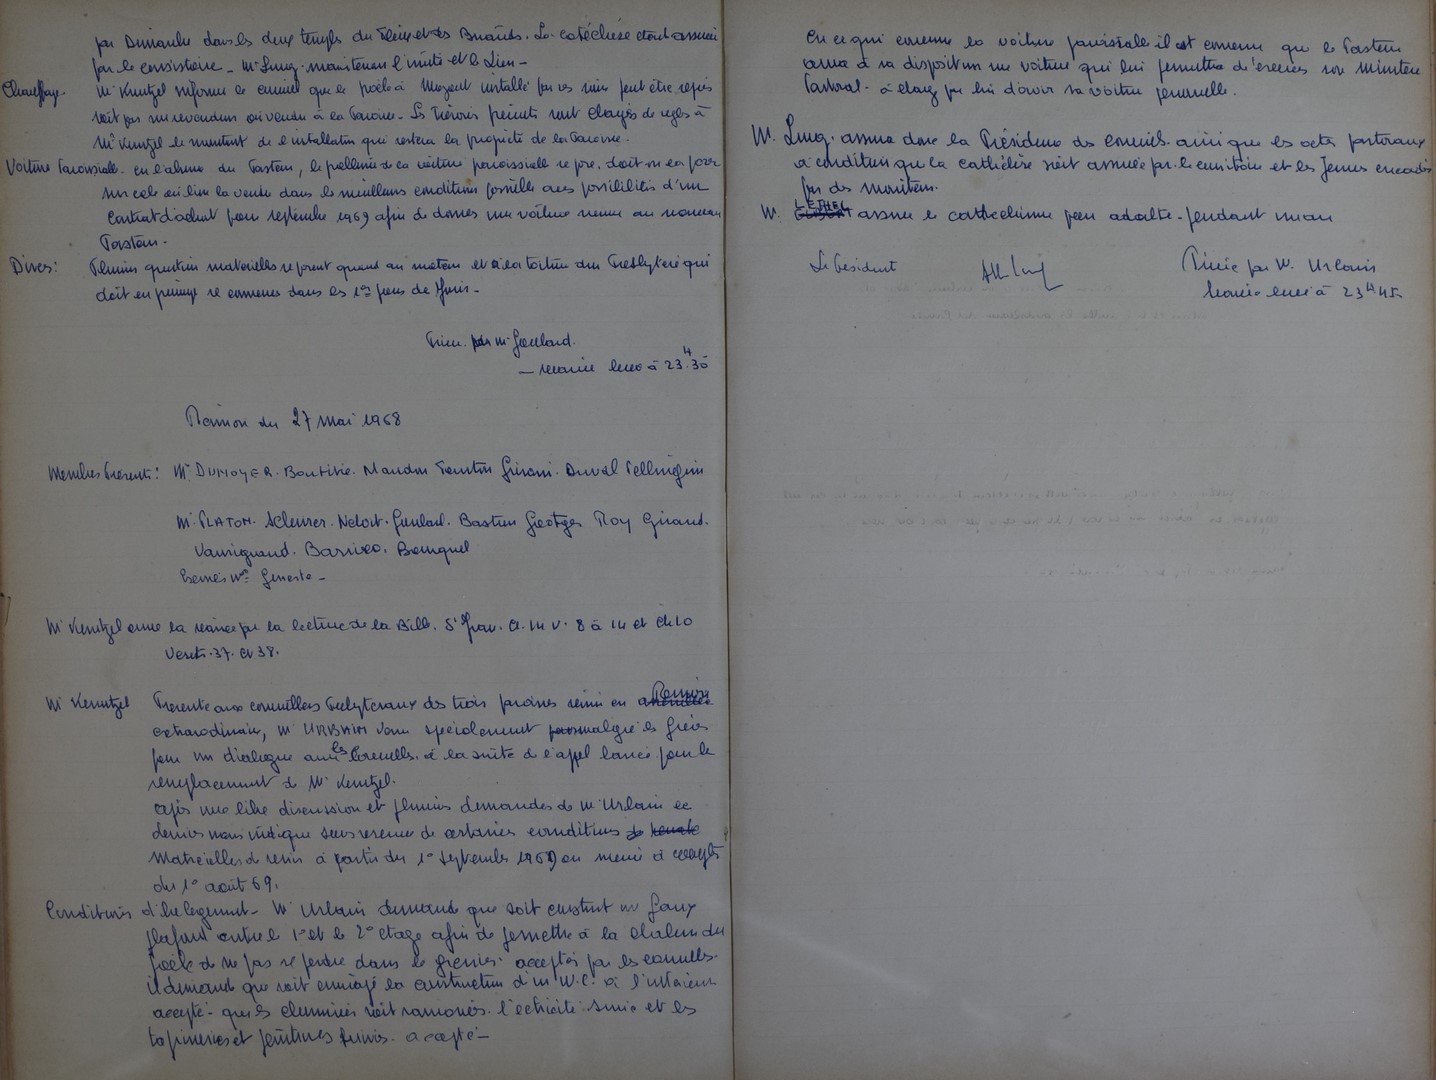 par Dimanche dans les deux temples du Fleix et des Briands. La catéchèse étant assurée
par le consistoire - Mr Lung. maintenant l'unité et le Lien -
Chauffage. Mr Kuntzel informe le conseil que le poêle à Mazout installé par ses soins peut être repris
soit par un revendeur ou vendu à la Paroisse. Les Trésoriers présents sont chargés de régler à
Mr Kuntzel le montant de l'installation qui restera la propriété de la Paroisse.
Voiture Paroissiale. en l'absence du Pasteur, le problème de la voiture paroissiale se pose. doit-on la
sur cale ou bien la vendre dans les meilleurs conditions possible avec possibilités d'un
contrat d'achat pour septembre 1969 afin de donner une voiture neuve au nouveau
Pasteur -
Divers: Plusieurs questions matérielles se posent quand au et à la toiture du Presbytère qui
doit en principe se commencer dans les 1ers jours de Juin -
Prière. par Mr Goulard.
- séance levée à 23H30
Réunion du 27 mai 1968
Membres Présents: Mr DUMOYER. Boutirie. Naudon Pauston Girani. Duval Pellnigein
Mr PLATON. Scheurer. Neboit. Goulard. Bastien Georges Roy Giraud.
Vauriguaud. Barrièro. Bouriquel
Excusés Mme Geneste -
Mr Kuntzel ouvre la séance par la lecture de la Bible. St Jean. Ch. 14 v. 8 à 14 et Ch 10
Versets. 37. et 38.
Mr Kuntzel Présente aux conseillers Presbyteraux des trois paroisses réunis en Réunion
extraordinaire, Mr URBAIN venu spécialement malgré les grèves
pour un dialogue avec les Conseillers. à la suite de l'appel lancé pour le
remplacement de Mr Kuntzel.
après une libre discussion et plusieurs demandes de Mr Urbain ce
dernier nous indique sous réserve de certaines conditions
Matérielles de venir à partir du 1er Septembre 1969 ou même à compter
du 1er août 69.
Conditions d'hebergement - Mr Urbain demande que soit construit un faux
plafond entre le 1er et le 2e étage afin de permettre à la chaleur du
poêle de ne pas se perdre dans le grenier. accepté par les conseillers.
il demande que soit envisagé la construction d'un W.C. à l'intérieur
accepté - que les cheminées soit ramonées. l'electricité suivie et les
tapisseries et peintures suivis. accepté -
En ce qui concerne la voiture paroissiale il est convenu que le Pasteur
aura à sa disposition une voiture qui lui permettra d'exercer son ministère
Pastoral. à charge par lui d'avoir sa voiture personnelle.
M. Lung. assure donc la Présidence des conseils ainsi que les actes pastoraux
à condition que la cathéchèse soit assurée par le consistoire et les Jeunes encadrés
par des moniteurs.
M. LETHEL assure le cathéchisme pour adulte - pendant un an
Le Président
Prière par M. Urbain
Séance levée à 23H45